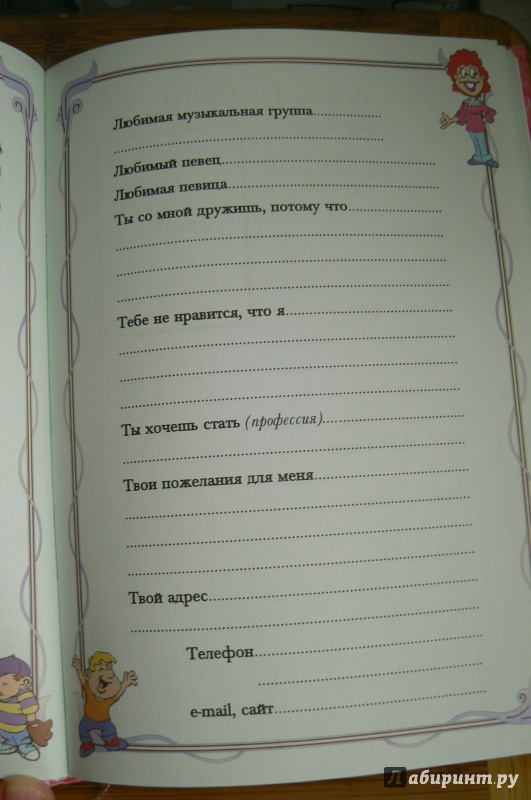 Любимая музыкальная группа................
................................................................
Любимый певец..................................................
Любимая певица..................................................
Ты со мной дружишь, потому что......................
................................................................
................................................................
................................................................
Тебе не нравится, что я........................................
................................................................
................................................................
................................................................
Ты хочешь стать (профессия)................................
................................................................
Твои пожелания для меня....................................
................................................................
................................................................
................................................................
Твой адрес................................................................
................................................................
Телефон......................................................
......................................................
e-mail, сайт..................................................
Лабиринт.ру